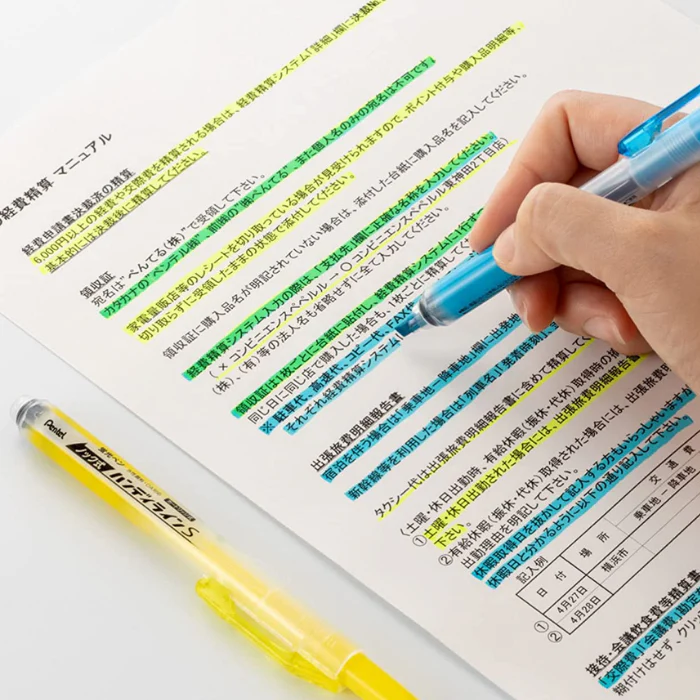 経費精算 マニュアル
経費申請書決裁済の精算
6,000円以上の経費や交際費を精算される場合は、経費精算システム「詳細」欄に決裁
基本的には決裁後に精算してください。
領収証
宛名は"ぺんてる(株)"で受領して下さい。
カタカナの"ペンテル"㈱、前株の"㈱ぺんてる"、また個人名のみの宛名は不可です。
家電量販店等のレシートを切り取っている場合が見受けられますので、ポイント付与や購入品明細等、
切り取らずに受領したままの状態で添付してください。
領収証に購入品名が明記されていない場合は、添付した台紙に購入品名を記入してください。
経費精算システム入力の際は、「支払先」欄に正確な名称を入力してください。
(×コンビニエンスペペル → ○コンビニエンスペペル東神田2丁目店)
(株)、(有)等の法人名も省略せずに全て入力してください。
領収証は1枚ごとに台紙に貼付し、経費精算システムに1行ず
同じ日に同じ店で購入した場合も、1枚ごとに精算してく
※ 駐車代、高速代、コピー代、FAX代
それぞれ経費精算システム
出張旅費明細報告書
宿泊を伴う場合は「乗車地－降車地」欄に出発地
新幹線等を利用した場合は「列車名」「発着時刻
タクシー代は出張旅費明細報告書に含めて精算して
(土曜・休日出勤時、有給休暇(振休・代休)取得時の
①土曜・休日出勤された場合には、出張旅費明細報告書
下さい。
②有給休暇(振休・代休)取得された場合には、出張旅費
出勤理由を明記して下さい。
休暇取得日を抜かして記入する方もいらっしゃいます
休暇日と分かるように以下の通り記入して下さい。
記入例
交通費
日付 場所 乗車地－降車地
① 4月27日 横浜市
② 4月28日
接待・会議飲食費等精算書
「交際費」「会議費」勘定
糊付けはせず、クリッ
Pentel
蛍光ペン
ノック式
ハンディラインS